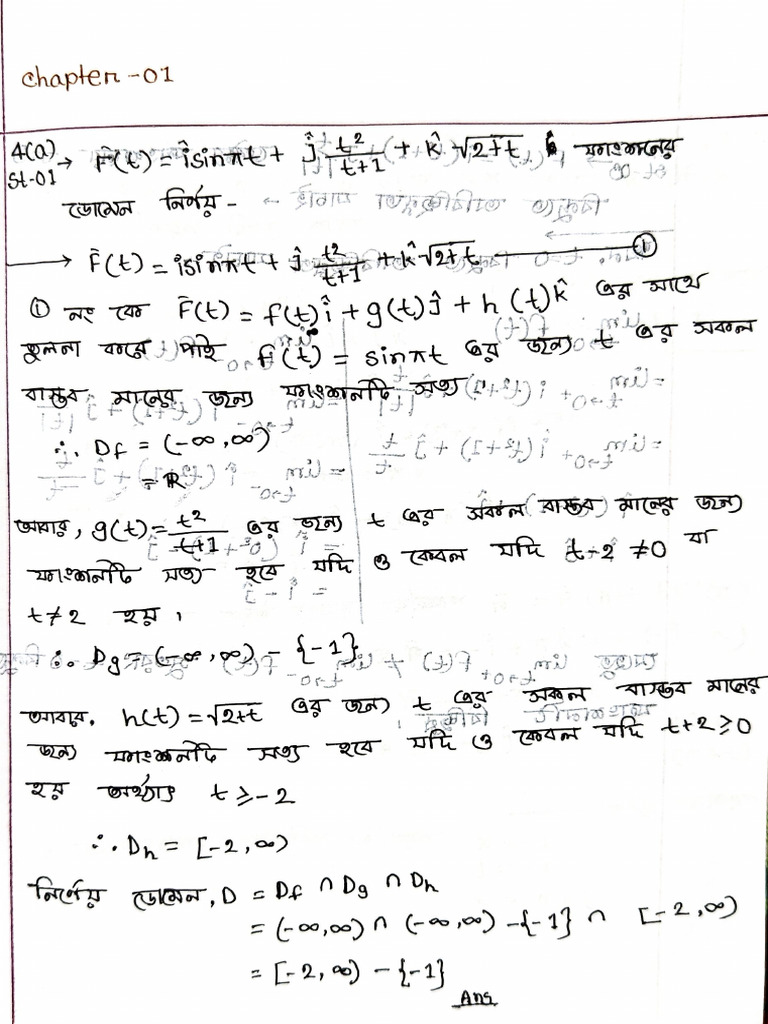 chapter-01
4(a) → F̄(t) = îsinπt + ĵ t²/t+1 + k̂ √2+t ফাংশনের
St-01
ডোমেন নির্ণয় -
→ F̄(t) = îsinπt + ĵ t²/t+1 + k̂√2+t ——— ①
① নং কে F̄(t) = f(t)î + g(t)ĵ + h(t)k̂ এর সাথে
তুলনা করে পাই f(t) = sinπt এর জন্য t এর সকল
বাস্তব মানের জন্য ফাংশনটি সত্য
∴ Df = (-∞,∞)
= ℝ
আবার, g(t) = t²/t+1 এর জন্য t এর সকল বাস্তব মানের জন্য
ফাংশনটি সত্য হবে যদি ও কেবল যদি t-2 ≠0 বা
t≠2 হয়।
∴ Dg = (-∞,∞) - {-1}
আবার, h(t) = √2+t এর জন্য t এর সকল বাস্তব মানের
জন্য ফাংশনটি সত্য হবে যদি ও কেবল যদি t+2≥0
হয় অর্থ্যাৎ t ≥ -2
∴ Dh = [-2,∞)
নির্ণেয় ডোমেন, D = Df ∩ Dg ∩ Dh
= (-∞,∞) ∩ (-∞,∞) -{-1} ∩ [-2,∞)
= [-2,∞) - {-1}
Ans